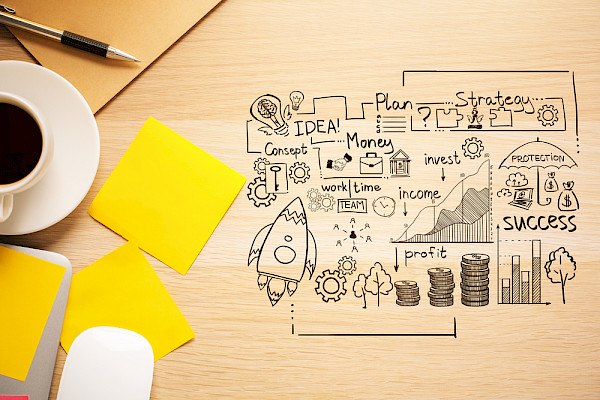 Plan
Strategy
IDEA!
?
Concept
Money
invest
PROTECTION
work time
income
TEAM
SUCCESS
profit